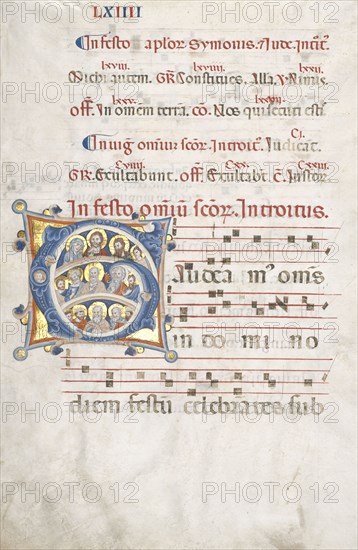 LXIIII
In festo aplor. Symonis. & Iude. Introit.
lxviii. lxviii. lxxii.
Michi autem. GR. Constitues. Alla. V. Nimis
lxxv.
Off. In omem terra. CO. Nos qui secuti esti
CI.
In uig. omnium scor. Introit. Iudicat
CXVIII. CXX. CXXIII.
GR. Exultabunt. Off. Exultabt C. Iustor
In festo omniu scor. Introitus.
Gaudea m' oms
in do mi no
diem festu celebrantes sub